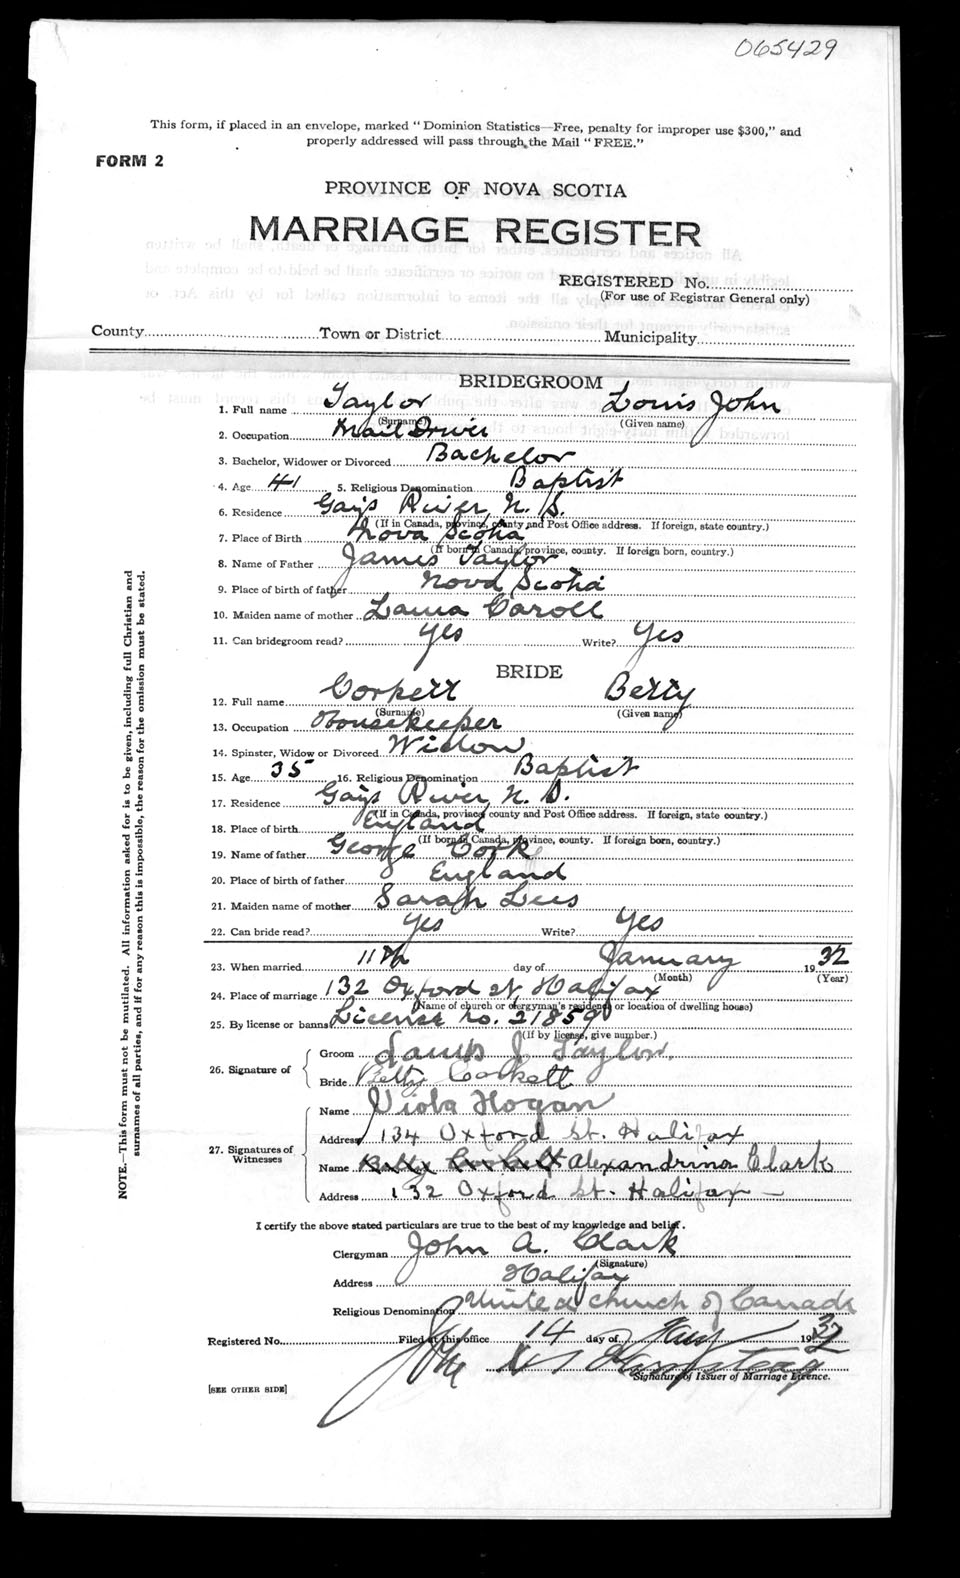 065429
This form, if placed in an envelope, marked "Dominion Statistics—Free, penalty for improper use $300," and
properly addressed will pass through the Mail "FREE."
FORM 2
PROVINCE OF NOVA SCOTIA
MARRIAGE REGISTER
REGISTERED No.
(For use of Registrar General only)
County Town or District Municipality
BRIDEGROOM
1. Full name Taylor Louis John
(Surname) (Given name)
2. Occupation Mail Driver
3. Bachelor, Widower or Divorced Bachelor
4. Age 41 5. Religious Denomination Baptist
6. Residence Gays River N. S.
(If in Canada, province, county and Post Office address. If foreign, state country.)
7. Place of Birth Nova Scotia
(If born in Canada, province, county. If foreign born, country.)
8. Name of Father James Taylor
9. Place of birth of father Nova Scotia
10. Maiden name of mother Laura Caroll
11. Can bridegroom read? Yes Write? Yes
BRIDE
12. Full name Corkett Betty
(Surname) (Given name)
13. Occupation Housekeeper
14. Spinster, Widow or Divorced Widow
15. Age 35 16. Religious Denomination Baptist
17. Residence Gays River N. S.
(If in Canada, province, county and Post Office address. If foreign, state country.)
18. Place of birth England
(If born in Canada, province, county. If foreign born, country.)
19. Name of father George Cork
20. Place of birth of father England
21. Maiden name of mother Sarah Lees
22. Can bride read? Yes Write? Yes
23. When married 11th day of January 1932
(Month) (Year)
24. Place of marriage 132 Oxford st Halifax
(Name of church or clergyman's residence or location of dwelling house)
25. By license or banns License no. 21859
(If by license, give number.)
26. Signature of Groom Louis J Taylor.
Bride Betty Corkett
27. Signatures of Witnesses
Name Viola Hogan
Address 134 Oxford St. Halifax
Name Betty Corkett Alexandrina Clark
Address 132 Oxford St. Halifax —
I certify the above stated particulars are true to the best of my knowledge and belief.
Clergyman John A. Clark
(Signature)
Address Halifax
Religious Denomination United church of Canada
Registered No. Filed at this office 14 day of 1932
Signature of Issuer of Marriage Licence.
[SEE OTHER SIDE]
NOTE.—This form must not be mutilated. All information asked for is to be given, including full Christian and
surnames of all parties, and if for any reason this is impossible, the reason for the omission must be stated.